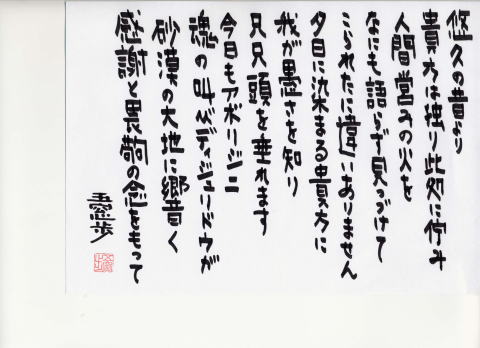 悠久の昔より
貴方は独り此処に佇み
人間営みの火を
なにも語らず見つづけて
こられたに違いありません
夕日に染まる貴方に
我が愚さを知り
只只頭を垂れます
今日もアボリジニ
魂の叫びディジュリドウが
砂漠の大地に響く
感謝と畏敬の念をもって